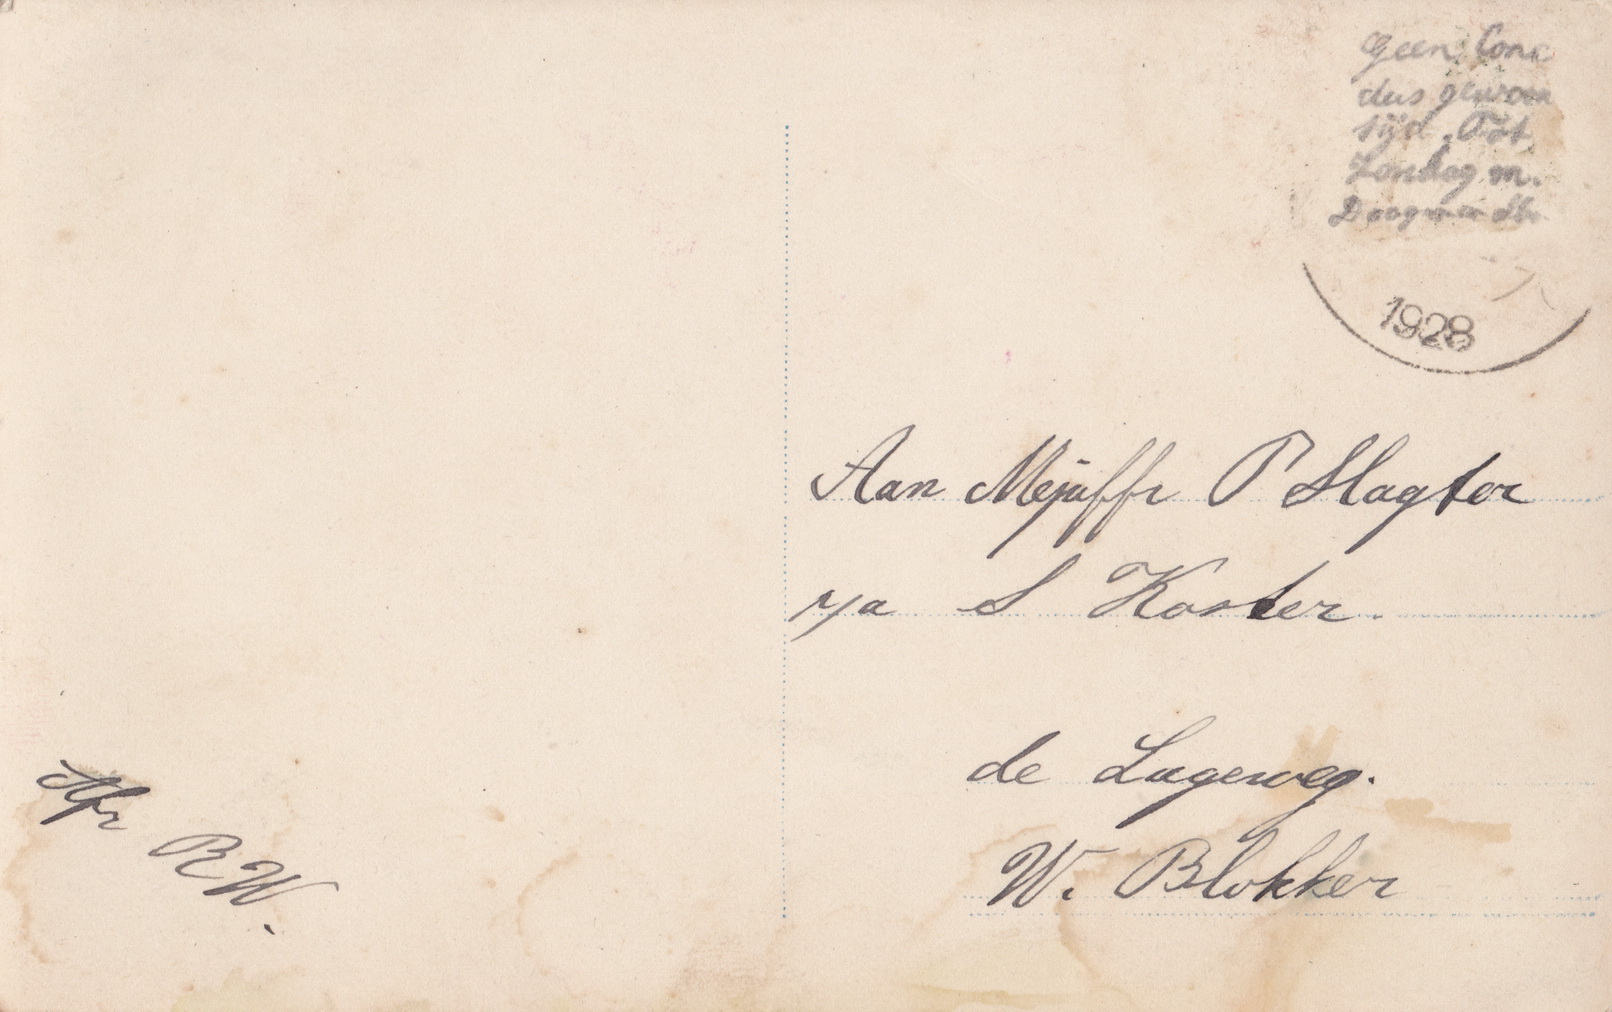 Geen Conc
dus gewoon
tijd. Tot
Zondag m.
1928
Aan Mejuffr P Slagter
p/a S Koster.
de Lageweg.
W. Blokker
Afz
R W.